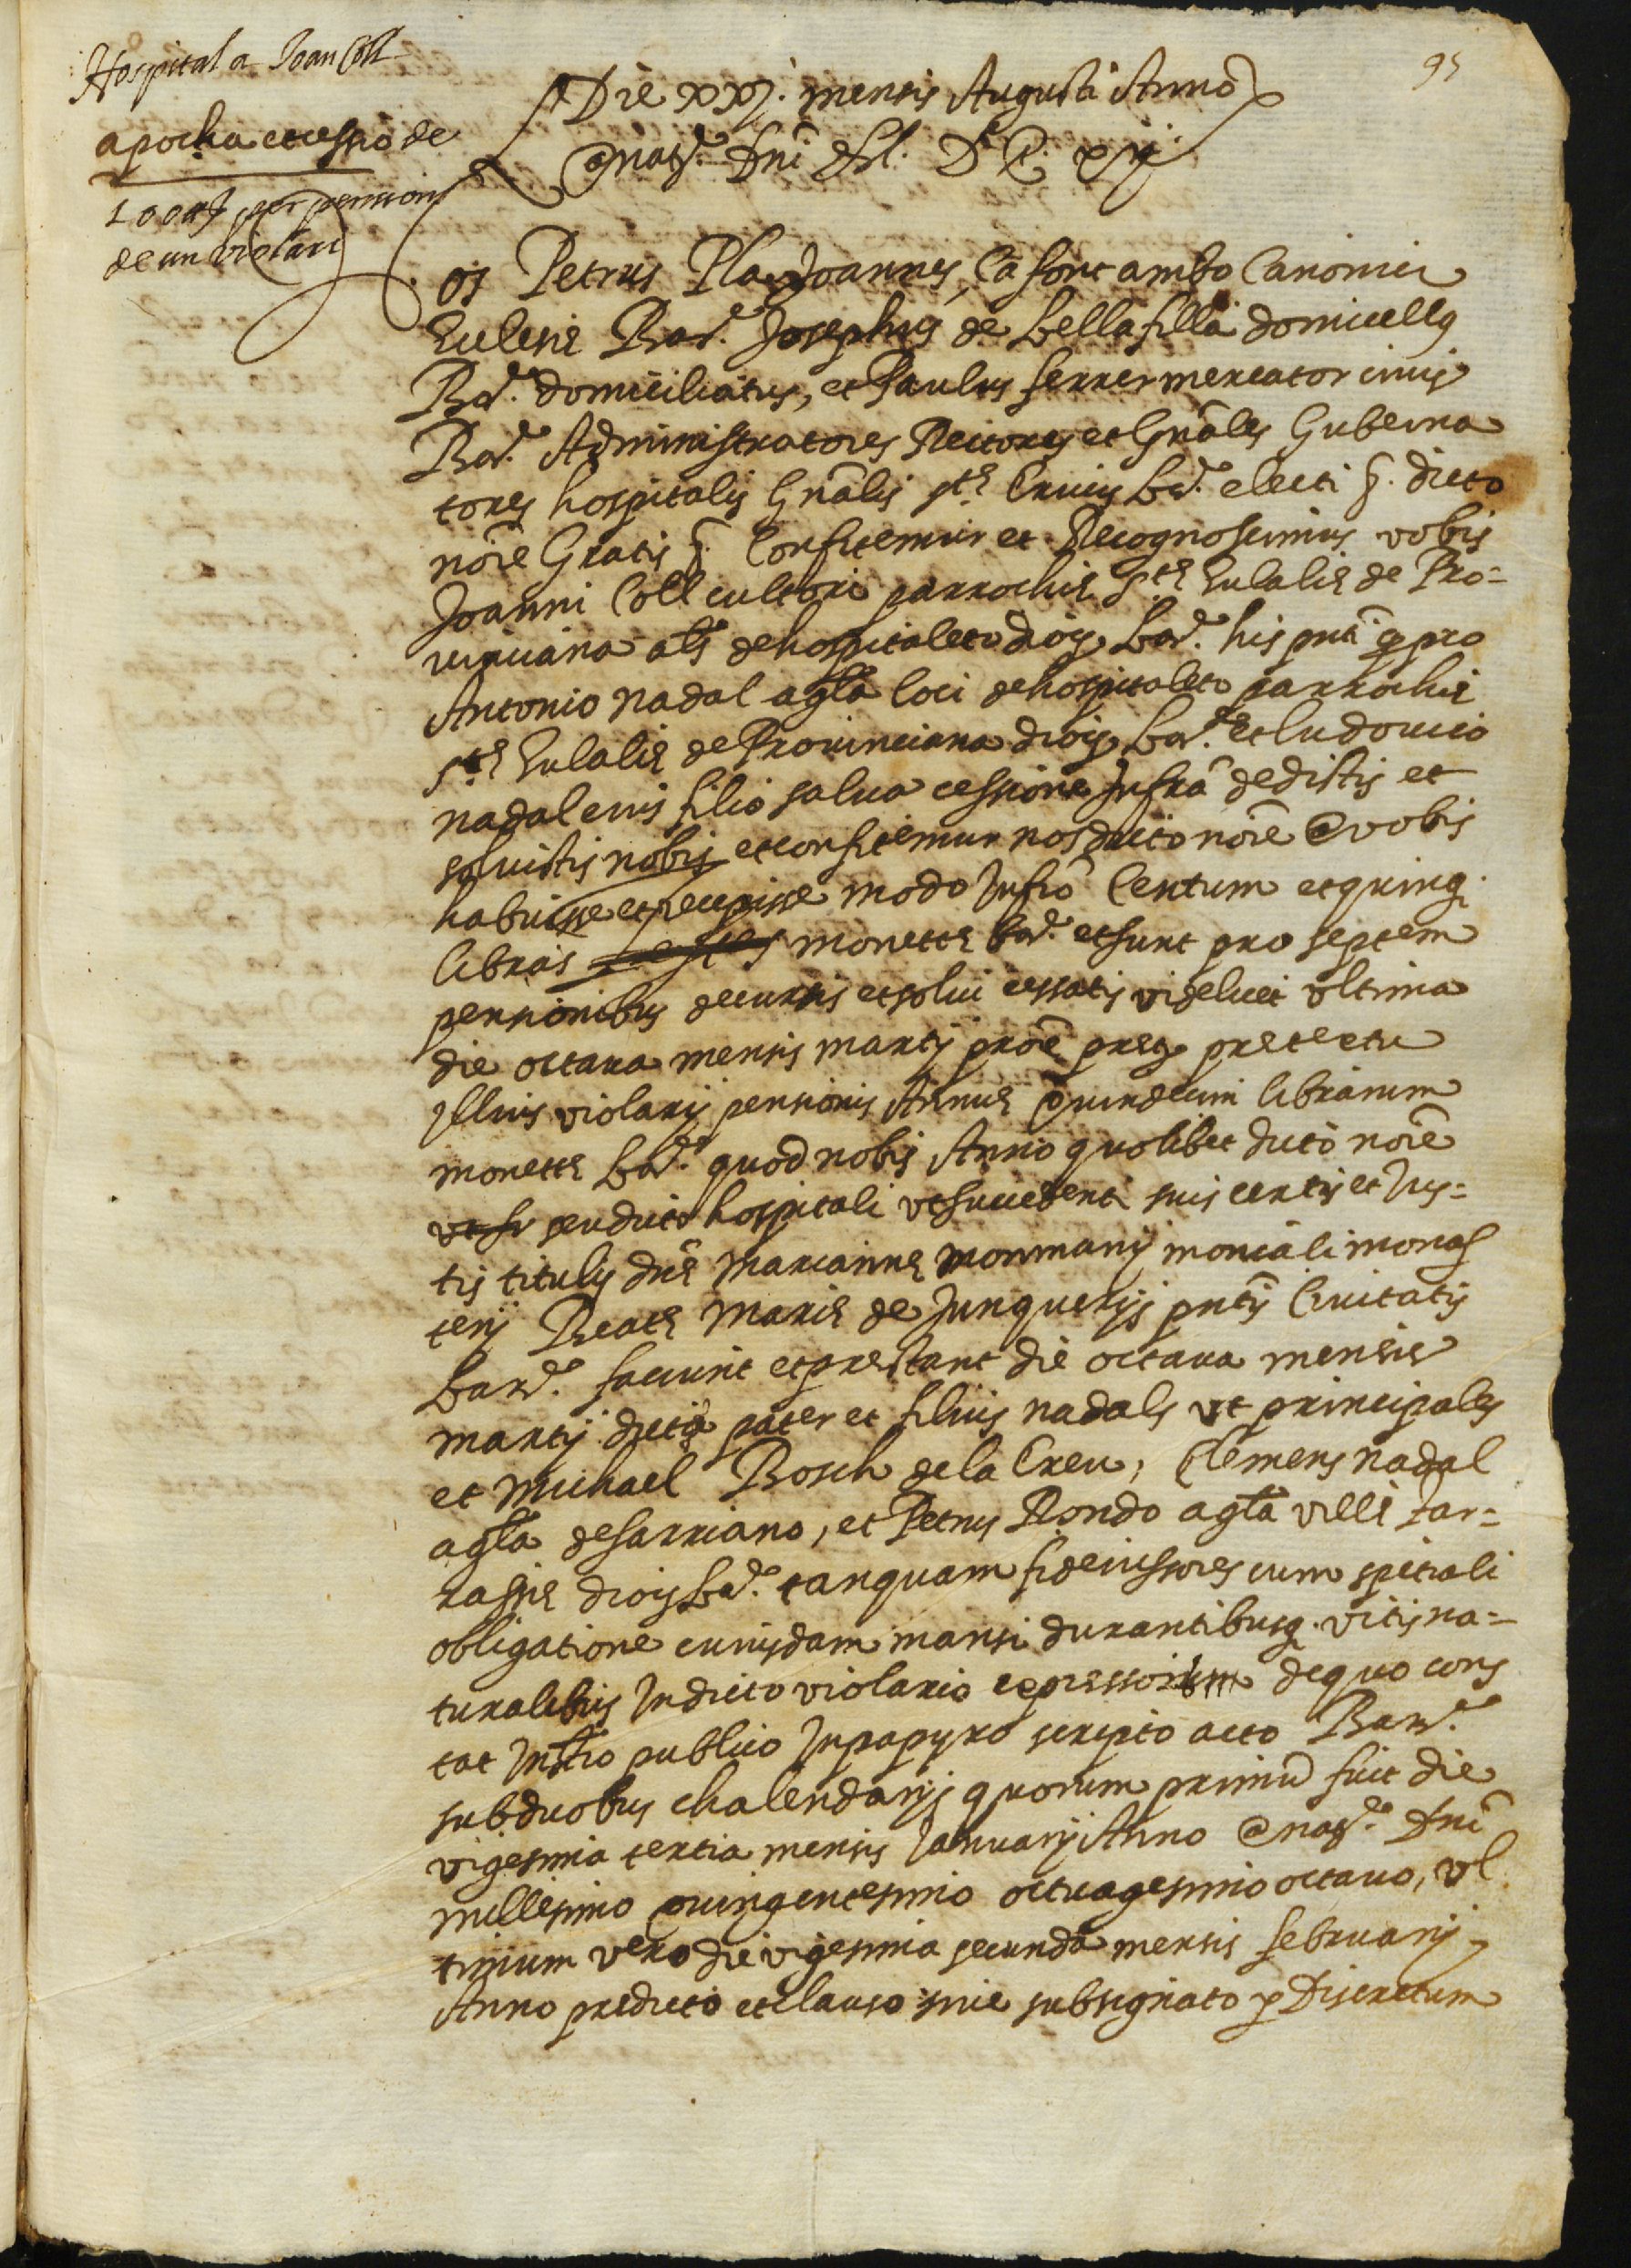 95
Hospital a Joan Coll
apocha et cessio de
per pensions
de un violari
Die xxj. mensis Augusti Anno
Dñi
os Petrus Pla Joannes, Ca font ambo Canonici
Eclesię Bar.ᵉ Josephus de Bellafilla domicellꝰ
Bar.ᵉ domiciliatus, et Paulus ferrer mercator civis
Bar.ᵉ Administratores Rectores et Gñales Guberna
tores hospitalis Gñalis stę Crucis Bar.ᵉ electi dicto
nõie Gratis Confitemur et Recognoscimus vobis
Joanni Coll cultori parrochię stę Eulalię de Pro=
vinciana als de hospitaleto diois Bar.ᵉ his pñti q pro
Antonio nadal agla loci de hospitaleto parrochię
stę Eulalię de Provinciana diois Bar.ᵉ et Ludovico
nadal eius filio salva cessione Infrã dedistis et
solvistis nobis et confitemur nos dicto nõie a vobis
habuisse et recepisse modo Infrõ Centum et quinq.
libras monetę Bar.ᵉ et sunt pro septem
pensionibus decursis et solvi cessatis videlicet ultima
die octava mensis martij prõe pretextu
Illius violarij pensionis Annuę quindecim librarum
monetę Bar.ᵉ quod nobis Anno quolibet dicto nõie
seu dicto hospitali ut succedenti suis certis et Jus=
tis titulis Dñę Mariannę monmany moniali monas
terij Beatę Marię de Junquerijs pñtis Civitatis
Barᵉ. faciunt et prestant die octava mensis
martij dicti pater et filius nadals ut principales
et Michael Bosch de la Creu, Clemens nadal
agla de sarriano, et Petrus Rondo agla villę tar=
rassię diois Bar.ᵉ tanquam fideiussores cum spetiali
obligatione cuiusdam mansi durantibusq. vitis na=
turalibus In dicto violario expressorum de quo cons
tat Instro publico In papyro scripto acto Barᵉ.
sub duobus chalendarijs quorum primũ fuit die
vigesima tertia mensis Januarij Anno a natᵉ. Dñi
millesimo quingentesimo octuagesimo octavo, ul
timum vero die vigesima secunda mensis februarij
Anno predicto et clauso sive subsignato p Discretum